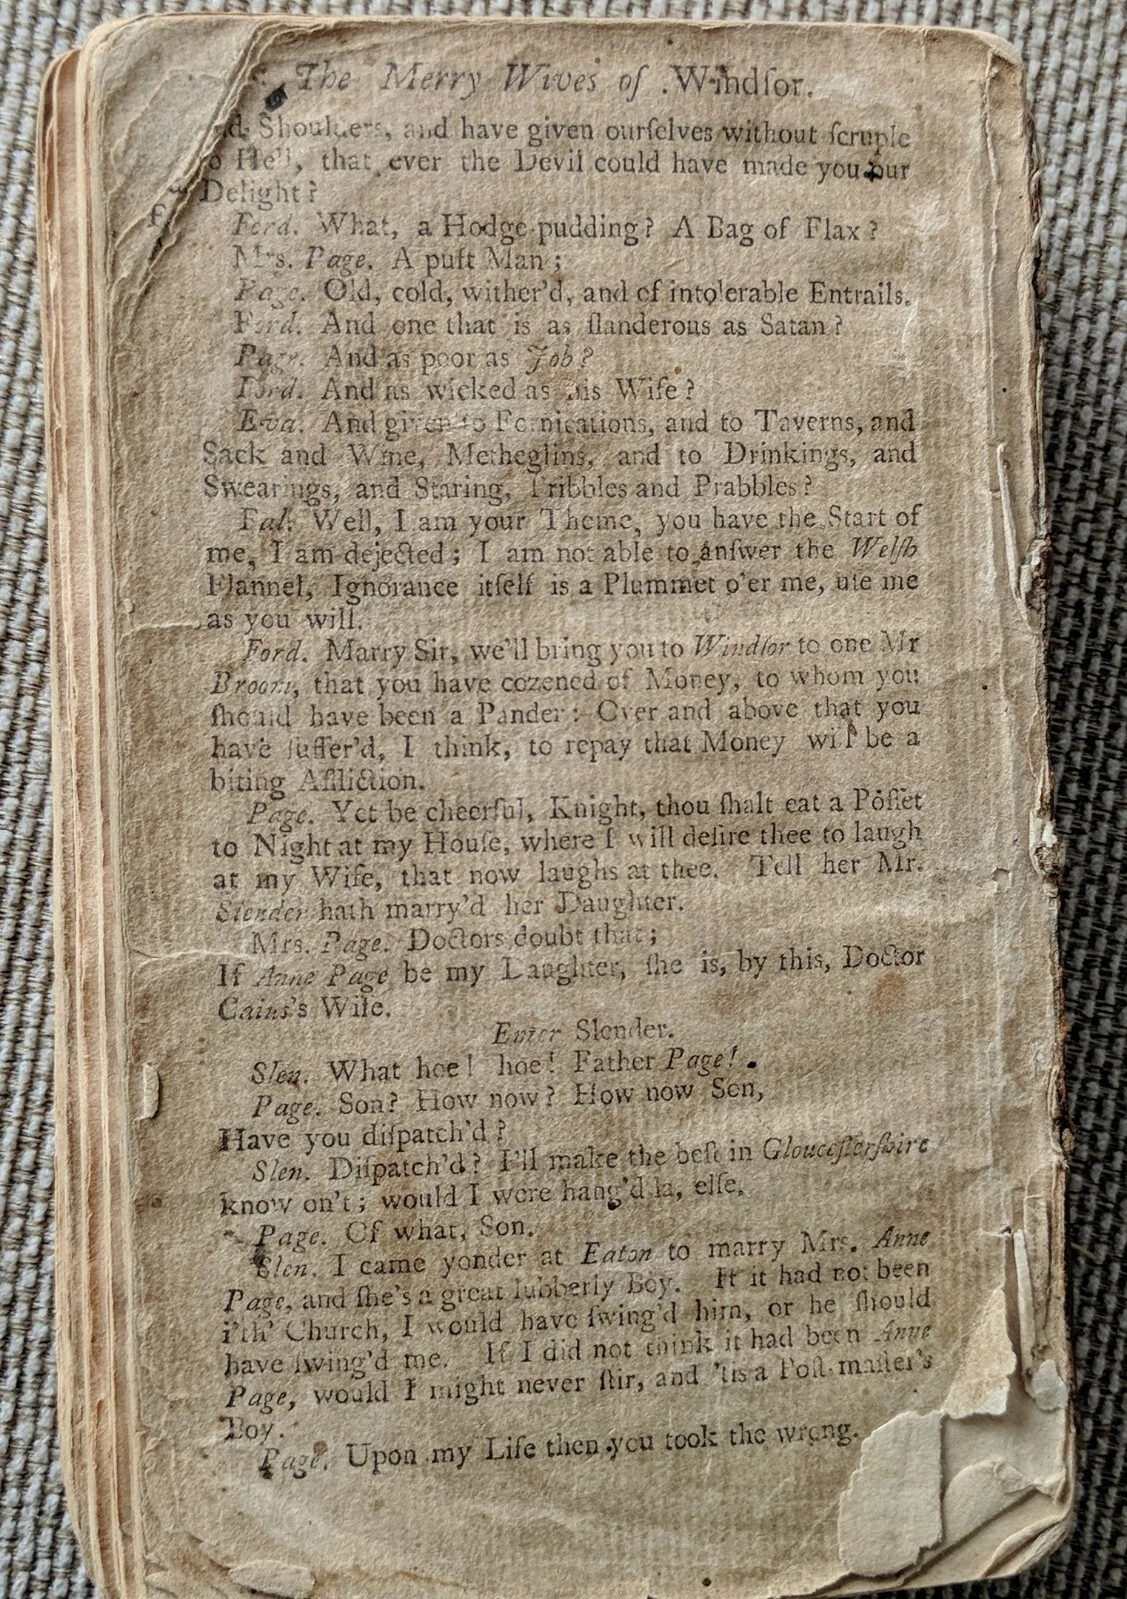 The Merry Wives of Windſor.
Shoulders, and have given ourſelves without ſcruple
Hell, that ever the Devil could have made you our
Delight?
Ford. What, a Hodge-pudding? A Bag of Flax?
Mrs. Page. A puft Man;
Page. Old, cold, wither'd, and of intolerable Entrails.
Ford. And one that is as ſlanderous as Satan?
Page. And as poor as Job?
Ford. And as wicked as his Wife?
Eva. And given to Fornications, and to Taverns, and
Sack and Wine, Metheglins, and to Drinkings, and
Swearings, and Staring, Pribbles and Prabbles?
Fal. Well, I am your Theme, you have the Start of
me, I am dejected; I am not able to anſwer the Welſh
Flannel, Ignorance itſelf is a Plummet o'er me, uſe me
as you will.
Ford. Marry Sir, we'll bring you to Windſor to one Mr
Broom, that you have cozened of Money, to whom you
ſhould have been a Pander: Over and above that you
have ſuffer'd, I think, to repay that Money will be a
biting Affliction.
Page. Yet be cheerful, Knight, thou ſhalt eat a Poſſet
to Night at my Houſe, where I will deſire thee to laugh
at my Wife, that now laughs at thee. Tell her Mr.
Slender hath marry'd her Daughter.
Mrs. Page. Doctors doubt that;
If Anne Page be my Daughter, ſhe is, by this, Doctor
Caius's Wife.
Enter Slender.
Slen. What hoe! hoe! Father Page!
Page. Son? How now? How now Son,
Have you diſpatch'd?
Slen. Diſpatch'd? I'll make the beſt in Glouceſterſhire
know on't; would I were hang'd la, elſe.
Page. Of what, Son.
Slen. I came yonder at Eaton to marry Mrs. Anne
Page, and ſhe's a great lubberly Boy. If it had not been
i'th' Church, I would have ſwing'd him, or he ſhould
have ſwing'd me. If I did not think it had been Anne
Page, would I might never ſtir, and 'tis a Poſt-maſter's
Boy.
Page. Upon my Life then you took the wrong.